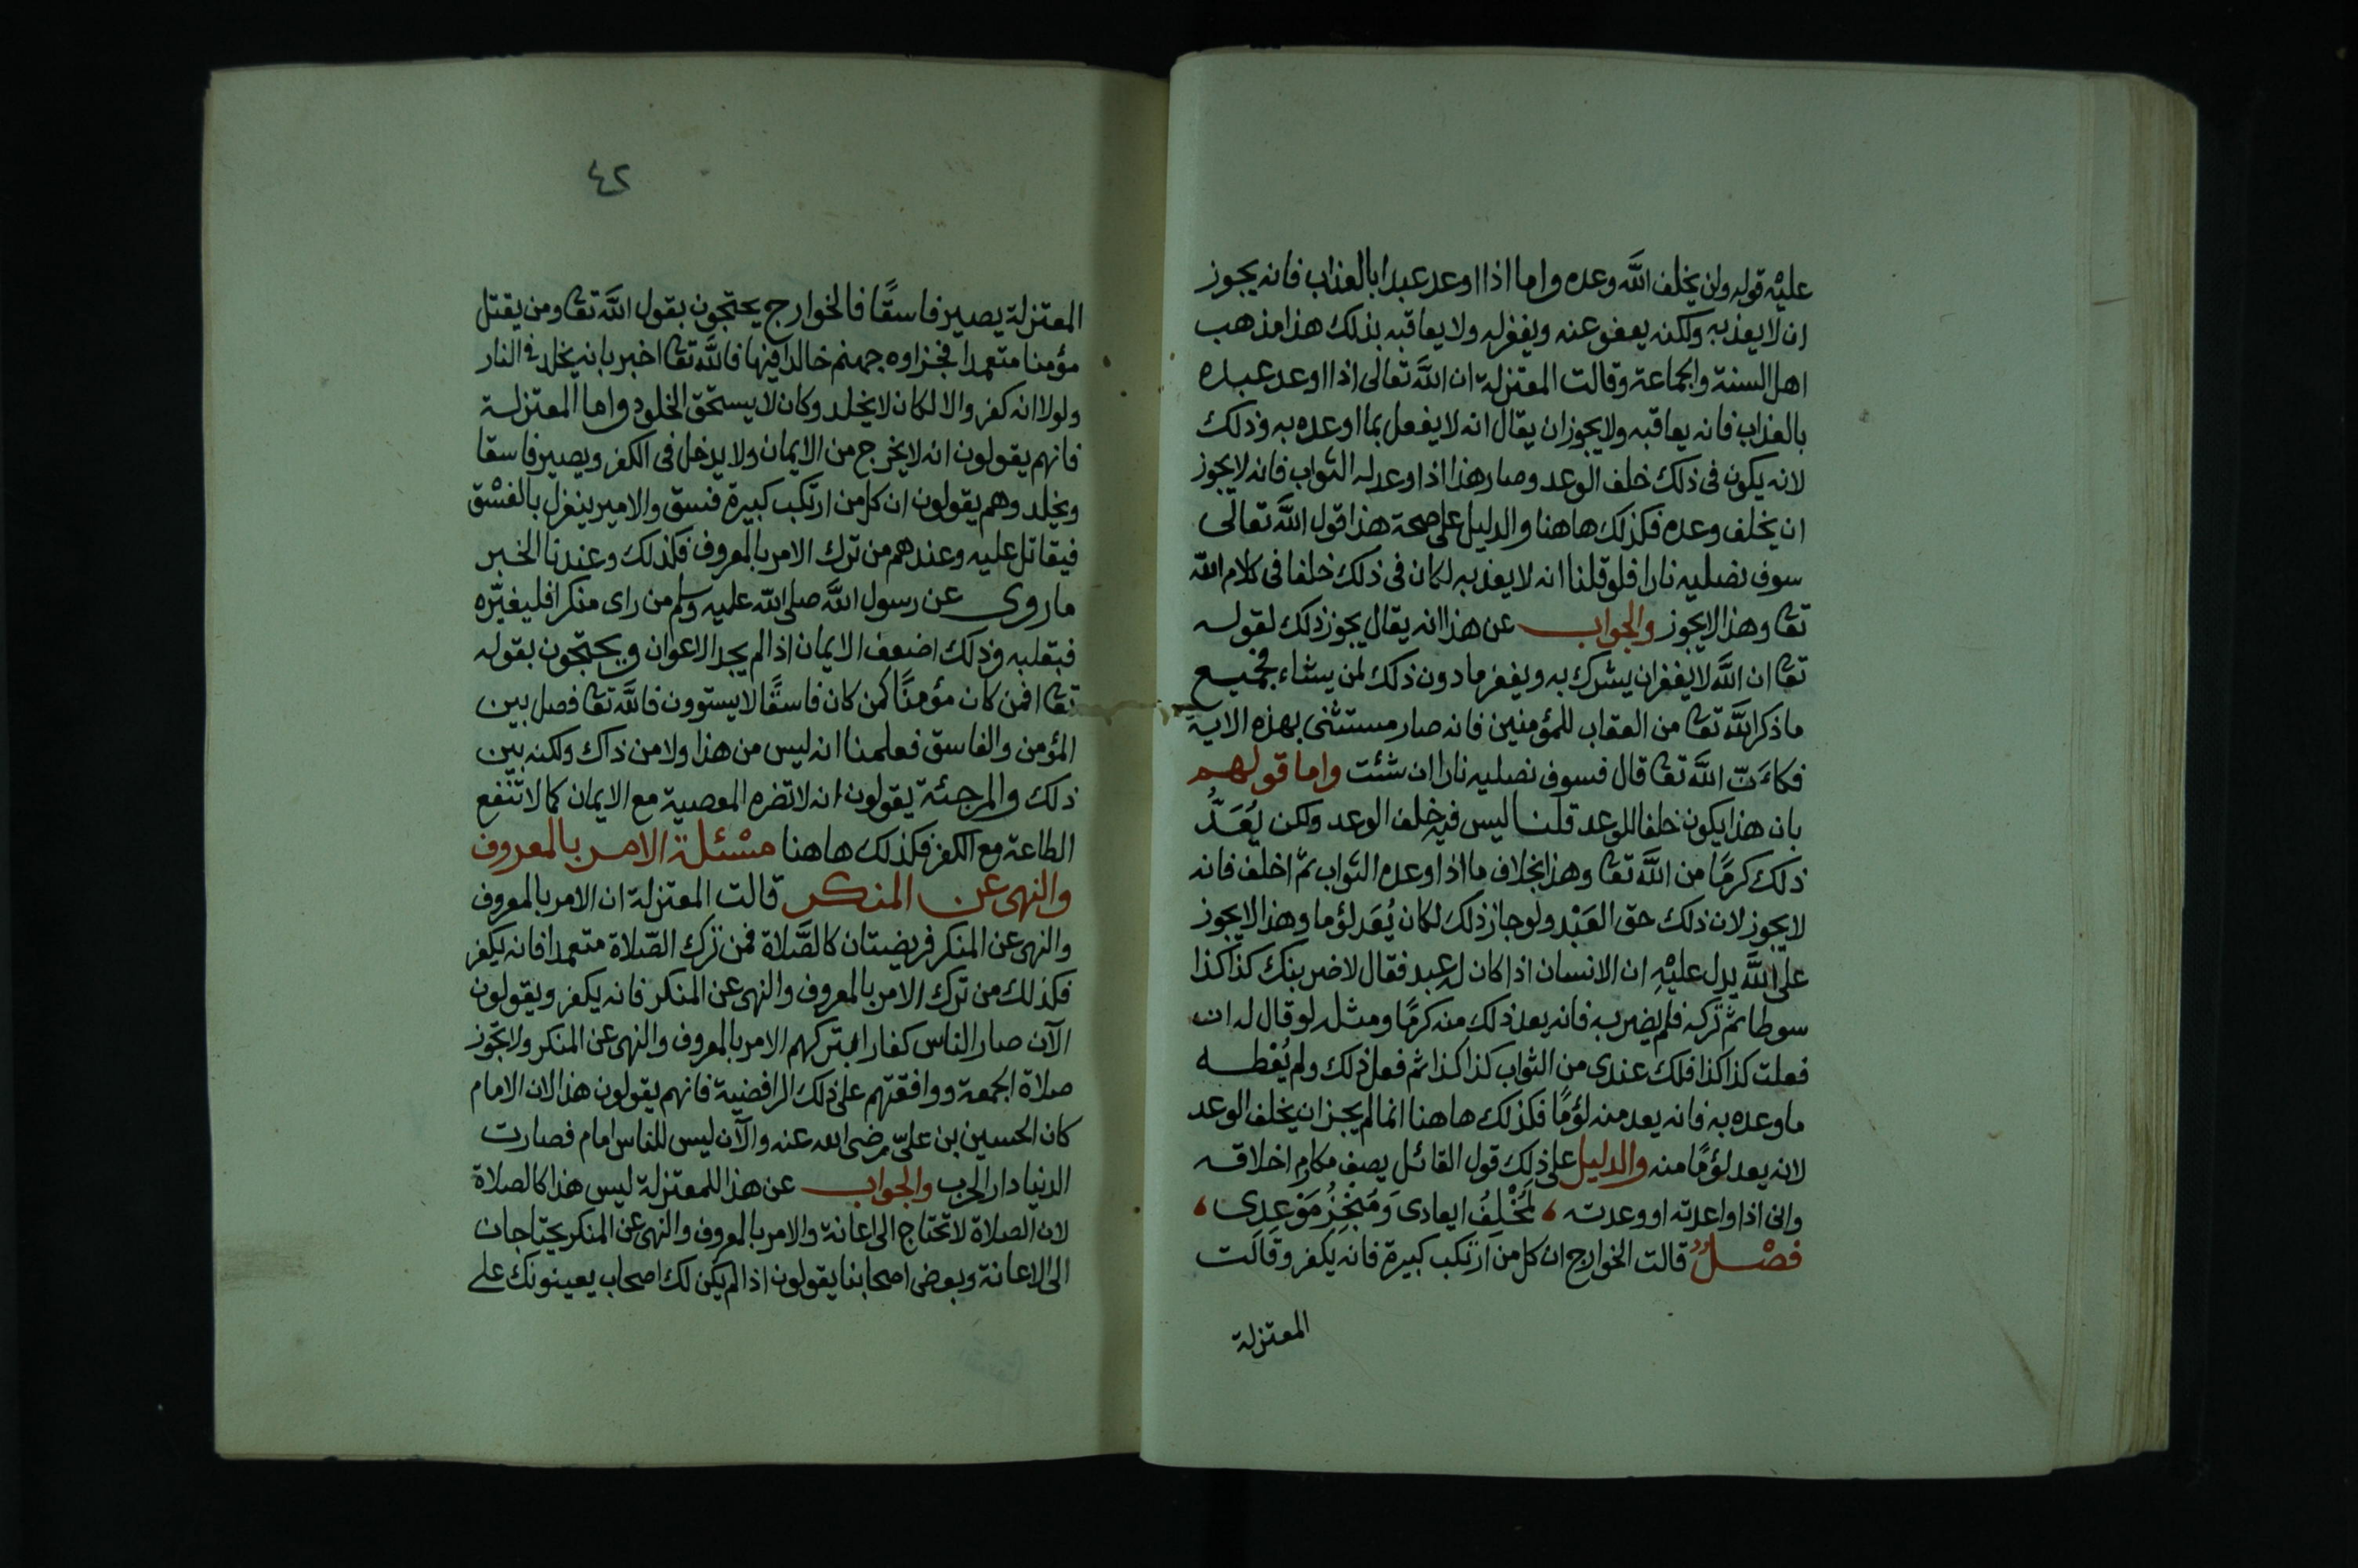 عليْه قوله ولن يخلف اللَّه وعده واما اذا اوعد عبدا بالعذاب فانه يجوز
ان لا يعذبه ولكنه يعفو عنه ويغفر له ولا يعاقبه بذلك هذا مذهب
اهل السنة والجماعة وقالت المعتزلة ان اللَّه تعالى اذا اوعد عبده
بالعذاب فانه يعاقبه ولا يجوز ان يقال انه لا يفعل بما اوعده به وذلك
لانه يكون فى ذلك خلف الوعد وصار هذا اذا وعد له الثواب فانه لا يجوز
ان يخلف وعده فكذلك هاهنا والدليل على صحة هذا قول اللَّه تعالى
سوف نصليه نارا فلو قلنا انه لا يعذبه لكان فى ذلك خلفا فى كلام اللّه
تعا وهذا لا يجوز والجواب عن هذا انه يقال يجوز ذلك لقوله
تعا ان اللَّه لا يغفر ان يشرك به ويغفر ما دون ذلك لمن يشاء فجميع
ما ذكر اللَّه تعا من العقاب للمؤمنين فانه صار مستثنى بهذه الاية
فكاءَنّ اللَّه تعا قال فسوف نصليه نارا ان شئت واما قولهم
بان هذا يكون خلفا للوعد قلنا ليس فيه خلف الوعد ولكن يُعَدُّ
ذلك كرمًا من اللَّه تعا وهذا بخلاف ما اذا وعده الثواب ثم اخلف فانه
لا يجوز لان ذلك حق العَبْد ولو جاز ذلك لكان يُعَد لؤما وهذا لا يجوز
على اللَّه يدل عليْهِ ان الانسان اذا كان له عبد فقال لاضربنك كذا كذا
سوطا ثم تركه فلم يضربه فانه يعد ذلك منه كرمًا ومثله لو قال له ان
فعلت كذا كذا فلك عندى من الثواب كذا كذا ثم فعل ذلك ولم يُعْطه
ما وعده به فانه يعد منه لؤمًا فكذلك هاهنا انما لم يجز ان يخلف الوعد
لانه يعد لؤمًا منه والدليل على ذلك قول القائل يصف مكارم اخلاقه
وانى اذا واعدته او وعدته ، لَمُخْلِفُ ايعادى وَمُنجِزُ مَوْعِدِى ،
فصْلٌ قالت الخوارج ان كل من ارتكب كبيرة فانه يكفر وقالت
المعتزلة
٤٢
المعتزلة يصير فاسقًا فالخوارج يحتجون بقول اللَّه تعا ومن يقتل
مؤمنا متعمدا فجزاوه جهنم خالدا فيها فاللَّه تعا اخبر بانه يخلد فى النار
ولولا انه كفر والا لكان لا يخلد وكان لا يستحق الخلود واما المعتزلة
فانهم يقولون انه لا يخرج من الايمان ولا يدخل فى الكفر ويصير فاسقا
ويخلد وهم يقولون ان كل من ارتكب كبيرة فسق والامير ينعزل بالفسْق
فيقاتل عليه وعندهم من ترك الامر بالمعروف فكذلك وعندنا الخبر
ما روى عن رسول اللَّه صلى اللّه عليه وسلم من راى منكرا فليغيّره
فبقلبه وذلك اضعف الايمان اذا لم يجد الاعوان ويحتجون بقوله
تعا افمن كان مؤمنًا كمن كان فاسقًا لا يستوون فاللَّه تعا فصل بين
المؤمن والفاسق فعلمنا انه ليس من هذا ولا من ذاك ولكنه بين
ذلك والمرجئة يقولون انه لا تضره المعصية مع الايمان كما لا تنفع
الطاعة مع الكفر فكذلك هاهنا مسْئلة الامر بالمعروف
والنهى عن المنكر قالت المعتزلة ان الامر بالمعروف
والنهى عن المنكر فريضتان كالصَّلاة فمن ترك الصّلاة متعمدا فانه يكفر
فكذلك من ترك الامر بالمعروف والنهى عن المنكر فانه يكفر ويقولون
الآن صار الناس كفارا بتركهم الامر بالمعروف والنهى عن المنكر ولا يجوز
صلاة الجمعة ووافقتهم على ذلك الرافضية فانهم يقولون هذا لان الامام
كان الحسين بن علىّ رضى الله عنه والآن ليس للناس امام فصارت
الدنيا دار الحرب والجواب عن هذا للمعتزلة ليس هذا كالصلاة
لان الصلاة لا تحتاج الى اعانة والامر بالمعروف والنهى عن المنكر يحتاجان
الى الاعانة وبعض اصحابنا يقولون اذا لم يكن لك اصحاب يعينونك على